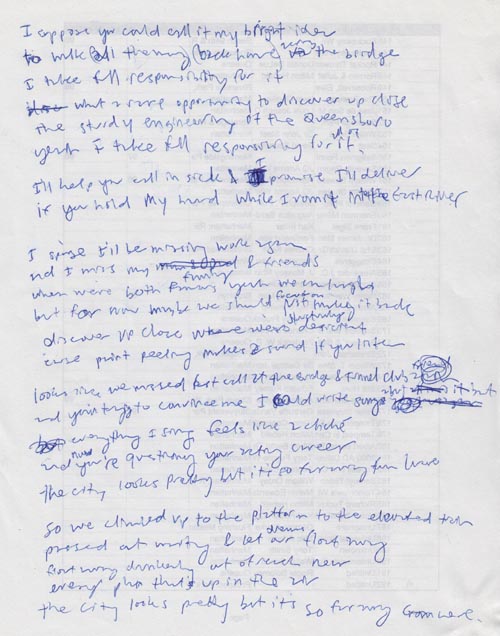 I suppose you could call it my bright idea
to walk all the way (back home) across the bridge
I take full responsibility for it
what a rare opportunity to discover up close
the sturdy engineering of the Queensboro
yeah I take full responsibility for all of it.
I'll help you call in sick & I promise I'll deliver
if you hold my hand while I vomit into the East River
I spose I'll be missing work again
and I miss my family & friends
when we're both famous yeah we can laugh
but for now maybe we should focus on just making it back
discover up close where we're deficient
cause paint peeling makes a sound if you listen
looks like we missed last call at the Bridge & Tunnel Club
and you're trying to convince me I could write songs
everything I sing feels like a cliché
and now you're questioning your acting career
the city looks pretty but it's so far away from here
So we climbed up to the platform to the elevated train
passed out waiting & let our dreams float away
float away drunkenly out of reach now
every plan that's up in the air
the city looks pretty but it's so far away from here.